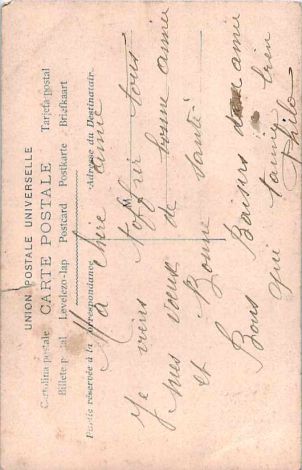 UNION POSTALE UNIVERSELLE
CARTE POSTALE
Cartolina postale Levelezo-lap Postcard Postkarte Tarjeta postal
Billete postal Briefkaart
Partie réservée à la correspondance Adresse du Destinataire
Ma chère amie
Je viens t'offrir tous
mes vœux de bonne année
et Bonne santé
Bons Baisers d'une amie
qui t'aime bien
Philo